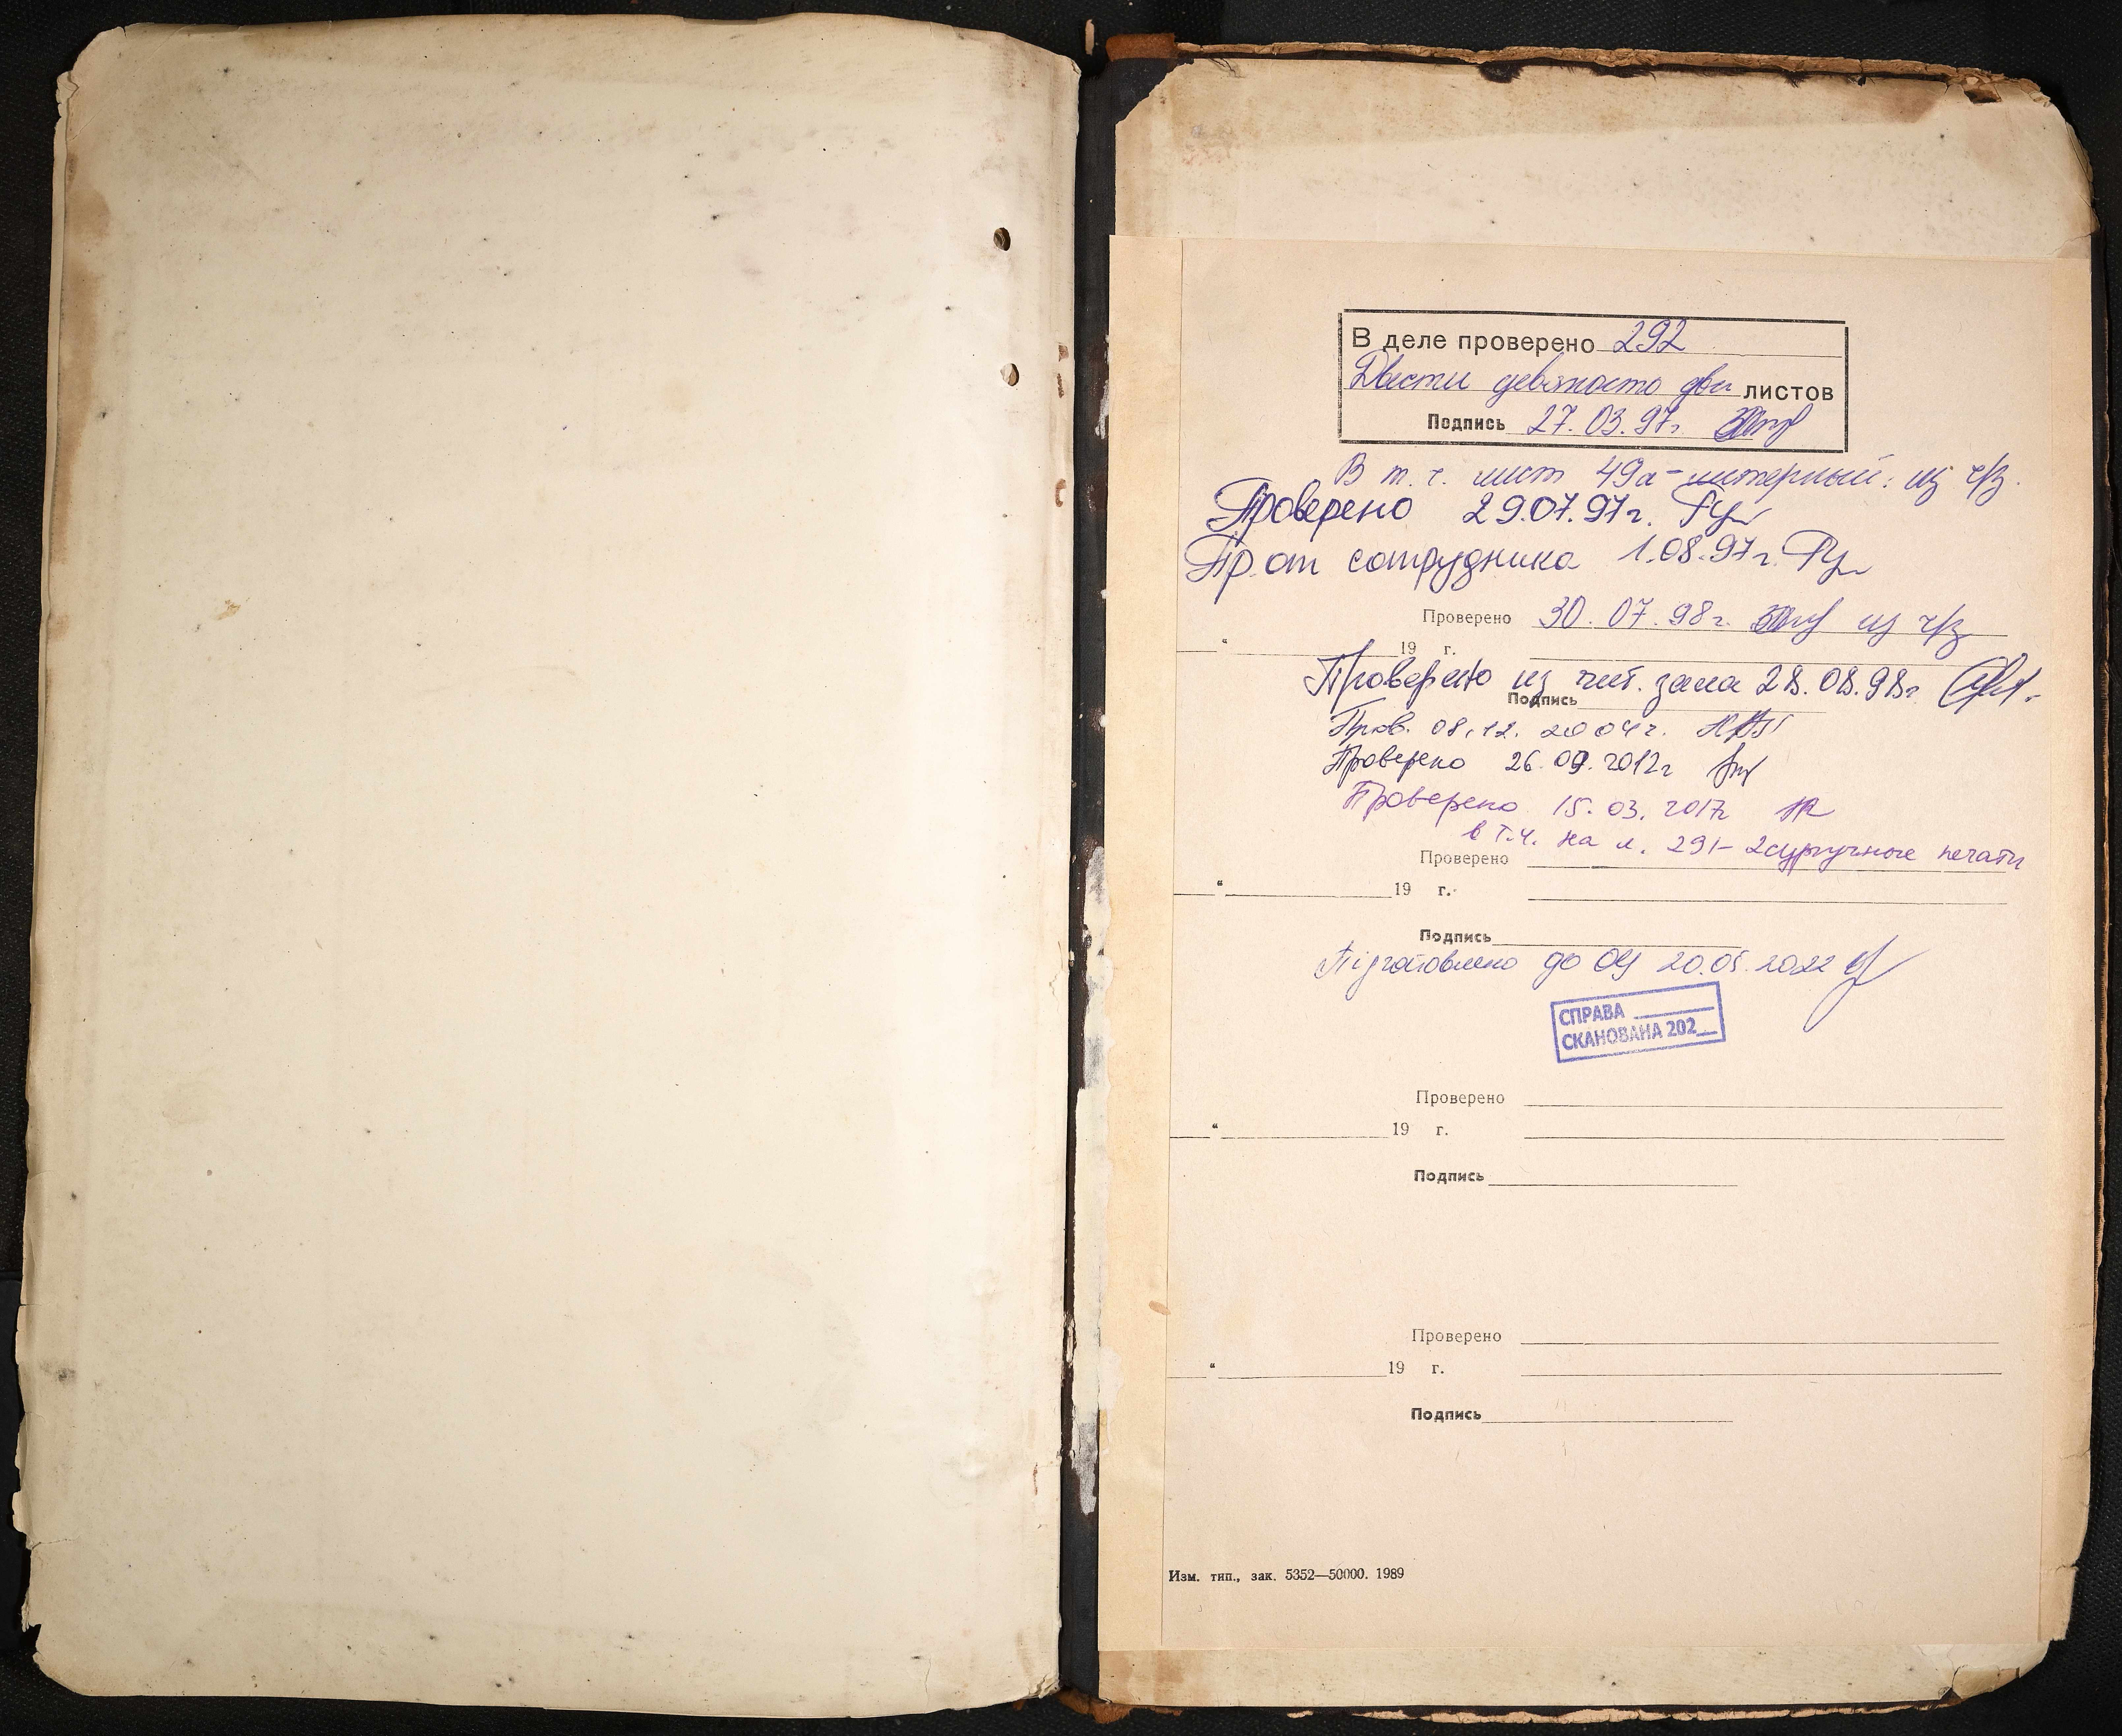 В деле проверено 292
Двести девяносто два листов
Подпись 27.03.97г.
В т.ч. лист 49а-литерный. из ч/з.
Проверено 29.07.97г.
Пр. от сотрудника 1.08.97г.
Проверено 30.07.98г. из ч/з
" 19 г.
Проверено из чит. зала 28.08.98г
Подпись
Пров. 08.12.2004г.
Проверено 26.09.2012г
Проверено 15.03.2017
в т.ч. на л. 291- 2 сургучные печати
Проверено
" 19 г.
Подпись
Підготовлено до ОЦ 20.05.2022
СПРАВА
СКАНОВАНА 202
Проверено
" 19 г.
Подпись
Проверено
" 19 г.
Подпись
Изм. тип., зак. 5352—50000. 1989